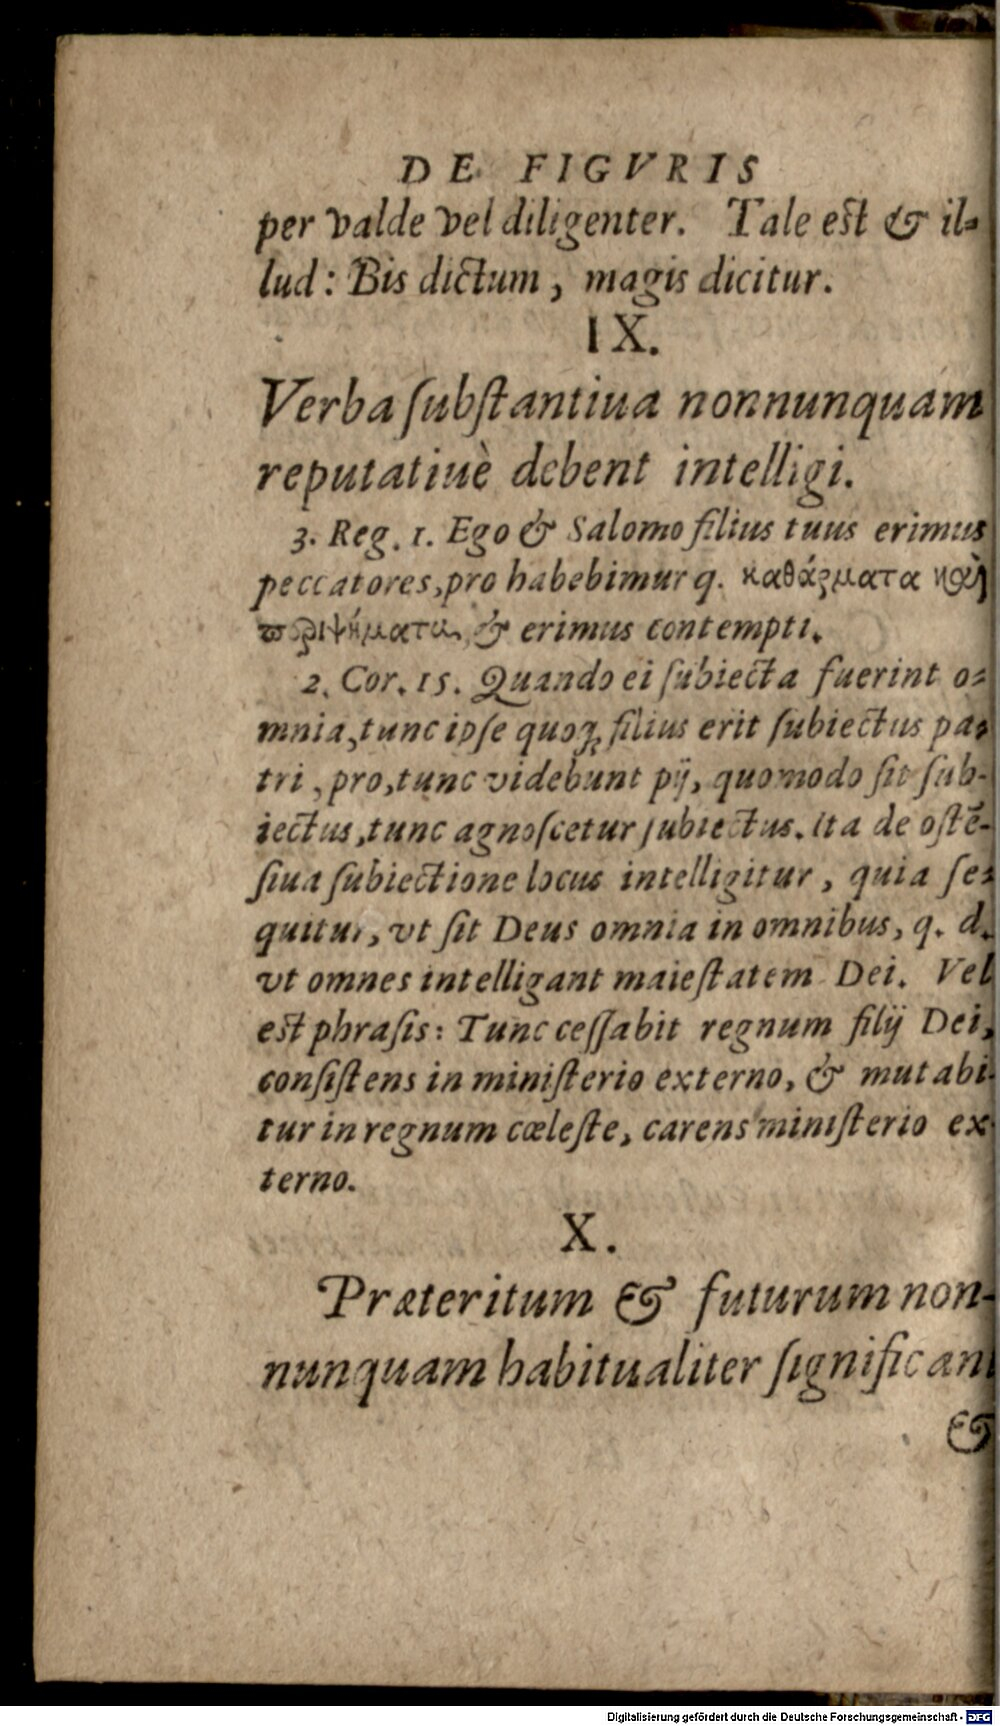 DE FIGVRIS
per valde vel diligenter. Tale est & il-
lud: Bis dictum, magis dicitur.
IX.
Verba ſubſtantiua nonnunquam
reputatiuè debent intelligi.
3. Reg. 1. Ego & Salomo filius tuus erimus
peccatores, pro habebimur q. καθάρματα καὶ
περιψήματα, & erimus contempti.
2. Cor. 15. Quando ei ſubiecta fuerint o-
mnia, tunc ipſe quoq; filius erit ſubiectus pa-
tri, pro, tunc videbunt pij, quomodo ſit ſub-
iectus, tunc agnoſcetur ſubiectus. Ita de oſtē-
ſiua ſubiectione locus intelligitur, quia ſe-
quitur, vt ſit Deus omnia in omnibus, q. d.
vt omnes intelligant maieſtatem Dei. Vel
est phraſis: Tunc ceſſabit regnum filij Dei,
conſiſtens in miniſterio externo, & mutabi-
tur in regnum cœleſte, carens miniſterio ex-
terno.
X.
Præteritum & futurum non-
nunquam habitualiter ſignificant
&
Digitalisierung gefördert durch die Deutsche Forschungsgemeinschaft - DFG